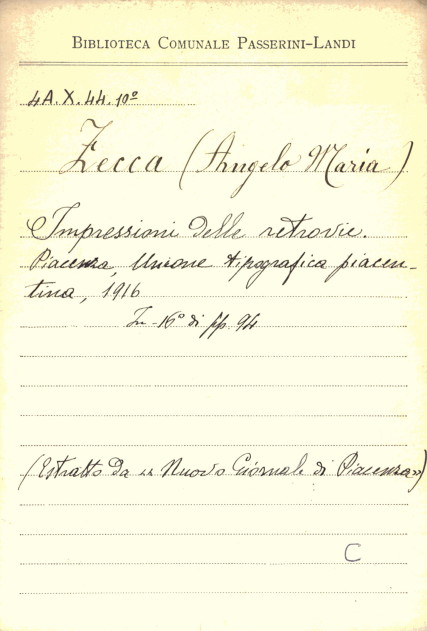 BIBLIOTECA COMUNALE PASSERINI-LANDI
4A.X.44.10º
Zecca (Angelo Maria)
Impressioni delle retrovie.
Piacenza, Unione tipografica piacen-
tina, 1916
In-16º di pp. 94
(Estratto da «Nuovo Giornale di Piacenza»)
C